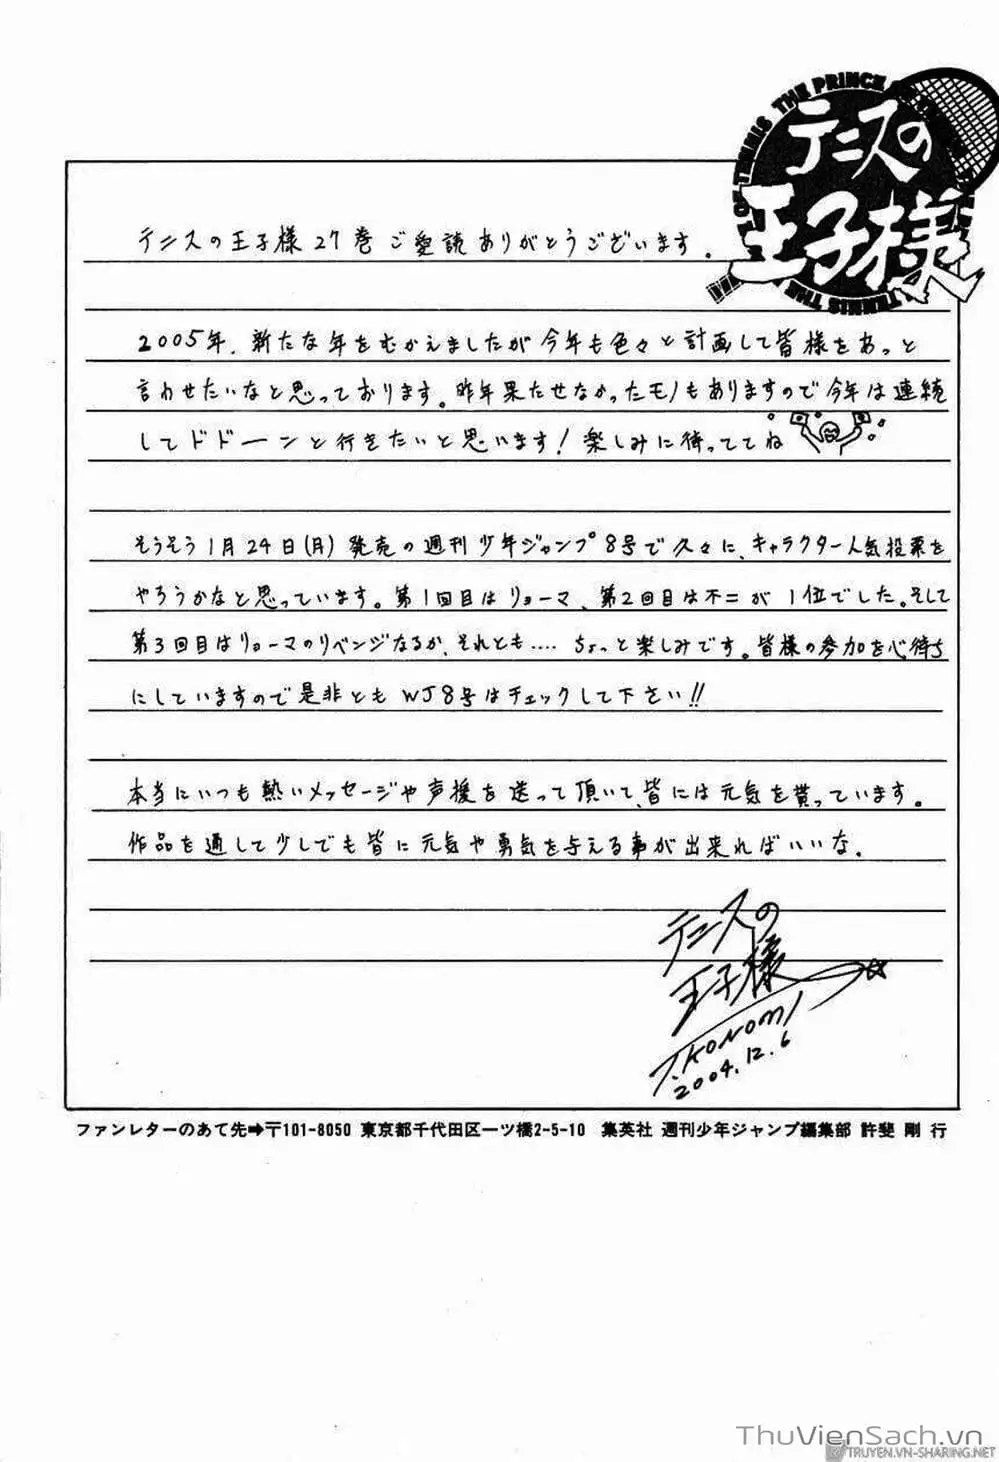 THE PRINCE OF TENNIS
テニスの
王子様
テニスの王子様27巻ご愛読ありがとうございます。
2005年、新たな年をむかえましたが今年も色々と計画して皆様をあっと
言わせたいなと思っております。昨年果たせなかったモノもありますので今年は連続
してドドーンと行きたいと思います!楽しみに待っててね
そうそう1月24日(月)発売の週刊少年ジャンプ8号で久々に、キャラクター人気投票を
やろうかなと思っています。第1回目はリョーマ、第2回目は不二が1位でした。そして
第3回目はリョーマのリベンジなるか、それとも‥‥ ちょっと楽しみです。皆様の参加を心待ち
にしていますので是非ともWJ8号はチェックして下さい!!
本当にいつも熱いメッセージや声援を送って頂いて、皆には元気を貰っています。
作品を通して少しでも皆に元気や勇気を与える事が出来ればいいな。
テニスの
王子様
T.KONOMI
2004.12.6
ファンレターのあて先➡〒101-8050 東京都千代田区一ツ橋2-5-10 集英社 週刊少年ジャンプ編集部 許斐 剛 行
ThuVienSach.vn
TRUYEN.VN-SHARING.NET